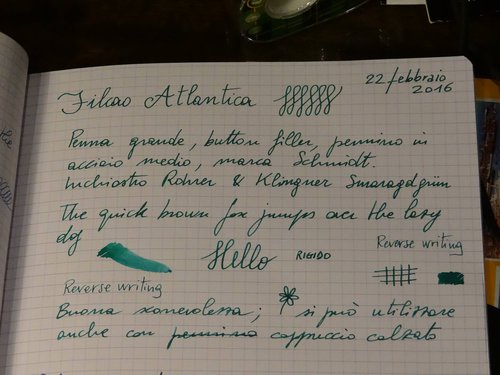 22 febbraio
2016
Filcao Atlantica
Penna grande, button filler, pennino in
acciaio medio, marca Schmidt.
Inchiostro Rohrer & Klingner Smaragdgrün
The quick brown fox jumps over the lazy
dog
Hello
RIGIDO
Reverse writing
Reverse writing
Buona scorrevolezza; si può utilizzare
anche con pennino cappuccio calzato